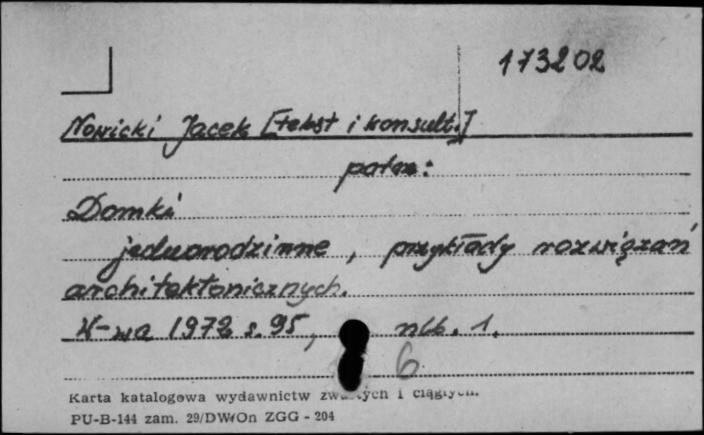 173202
Nowicki Jacek [tekst i konsult.]
patrz:
Domki
jednorodzinne, przykłady rozwiązań
architektonicznych.
W-wa 1972 s. 95, nlb. 1.
6
Karta katalogowa wydawnictw zwartych i ciągłych.
PU-B-144 zam. 29/DW/On ZGG - 204